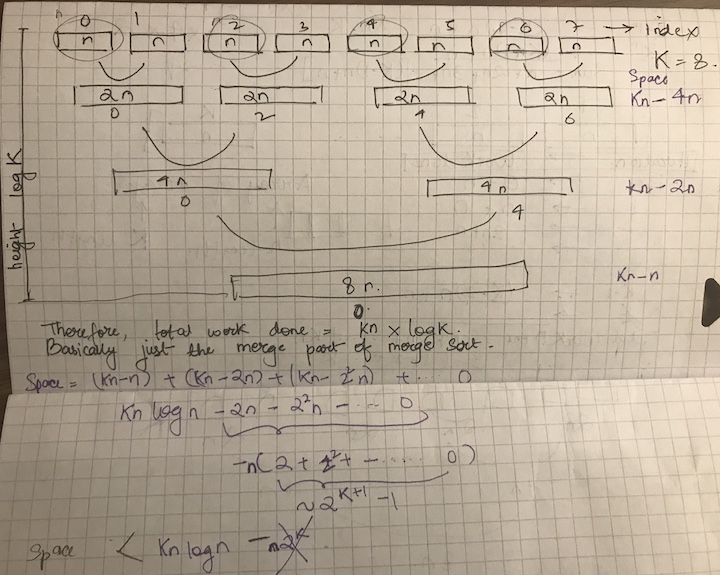 0 1 2 3 4 5 6 7 → index
n n n n n n n n
K = 8.
Space
2n 2n 2n 2n Kn – 4n
0 2 4 6
4n 4n Kn – 2n
0 4
height log K
8n. Kn – n
0.
Therefore, total work done = Kn × log K.
Basically just the merge part of merge sort.
Space = (Kn–n) + (Kn–2n) + (Kn–2²n) + ... 0
Kn log n – 2n – 2²n – ... 0
–n(2 + 2² + – ..... 0)
~ 2^(K+1) – 1
Space < Kn log n